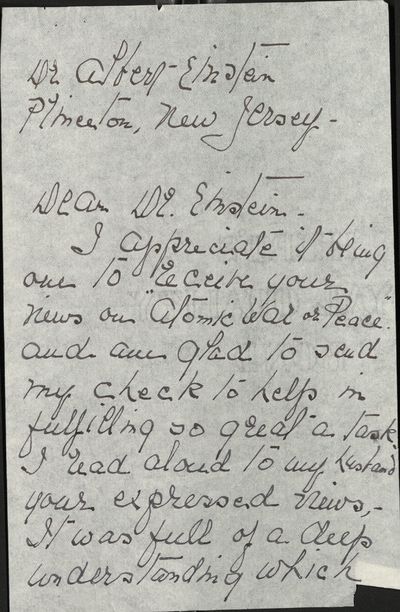 Dr Albert Einstein
Princeton, New Jersey -
Dear Dr. Einstein -
I appreciate it being
one to receive your
views on "Atomic War or Peace"
and am glad to send
my check to help in
fulfilling so great a task.
I read aloud to my husband
your expressed views, -
It was full of a deep
understanding which